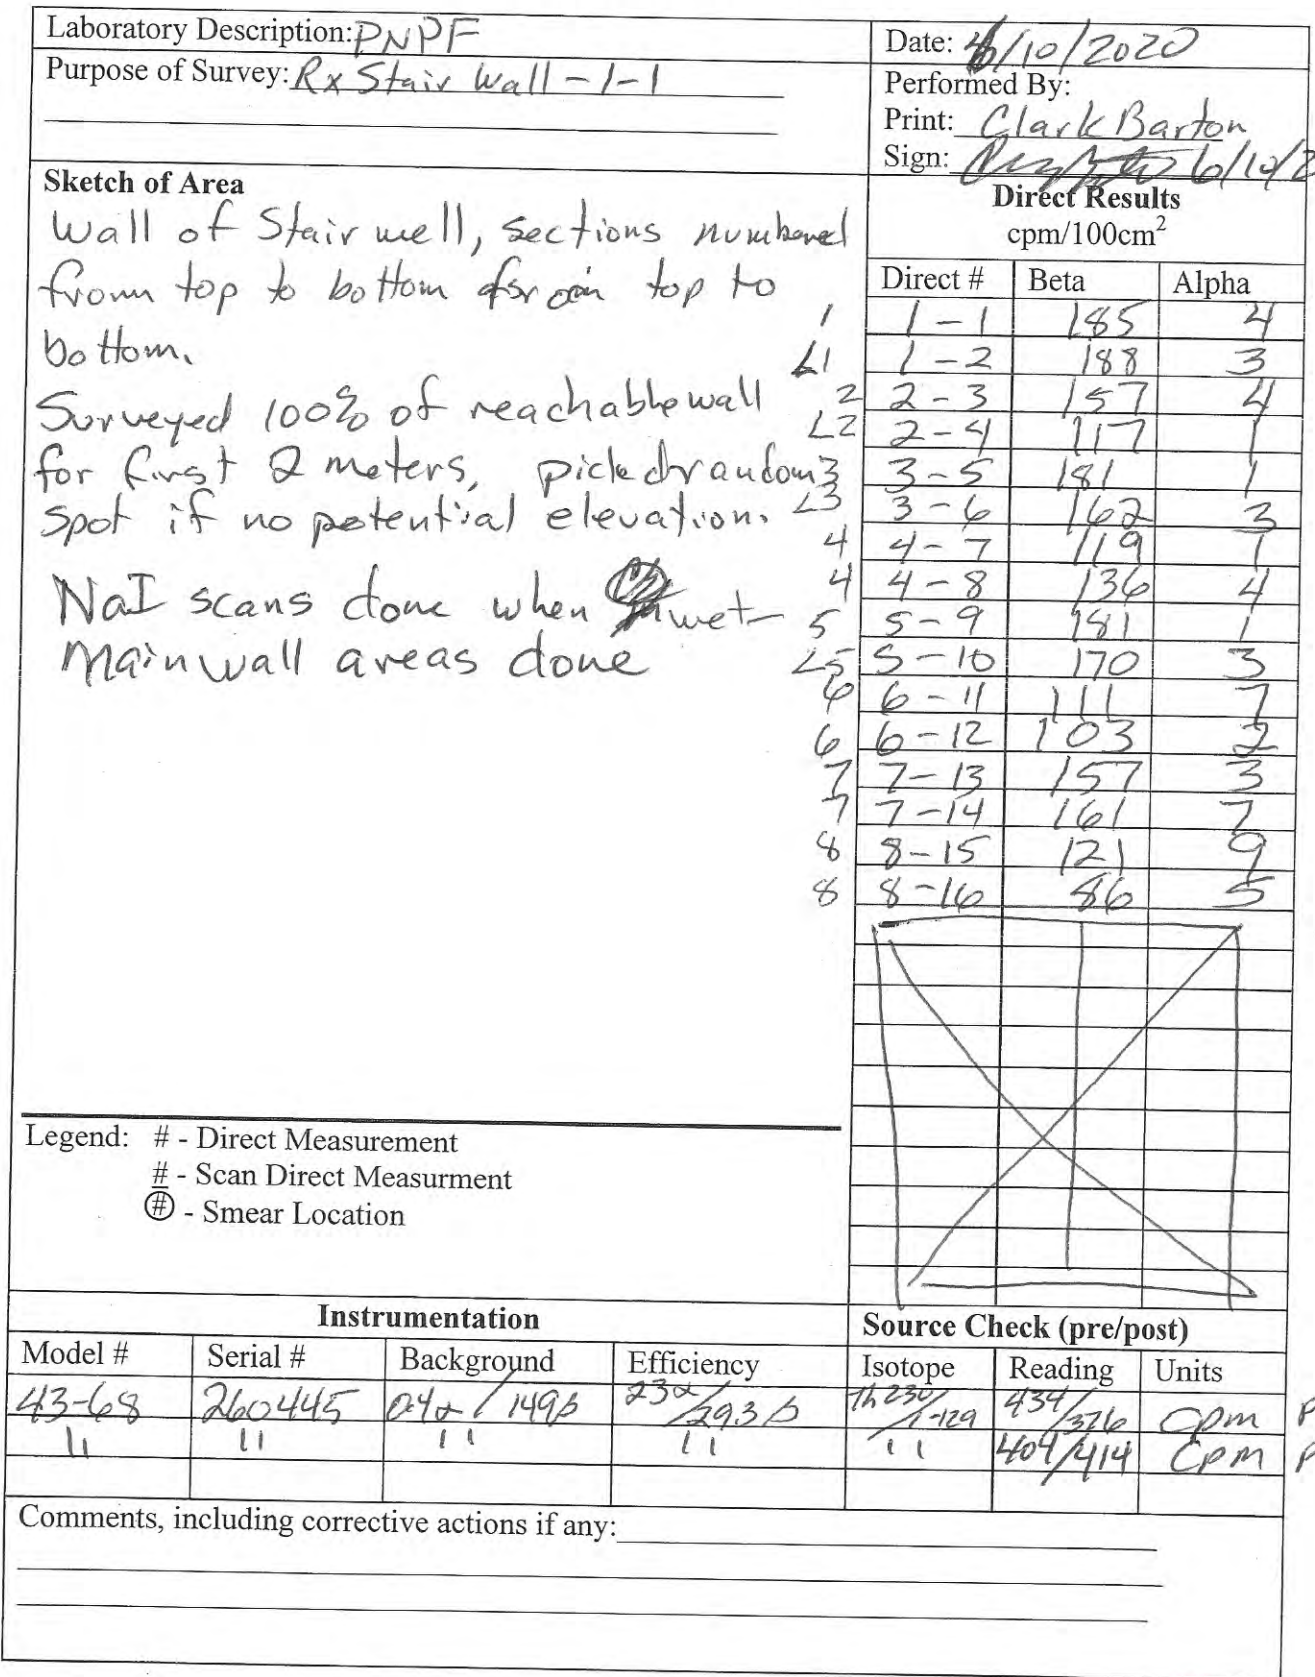 Laboratory Description: PNPF
Purpose of Survey: Rx Stair Wall - 1-1
Date: 6/10/2020
Performed By:
Print: Clark Barton
Sign: 6/10/2
Sketch of Area
Wall of Stair well, sections numbered
from top to bottom top to
bottom.
Surveyed 100% of reachable wall
for first 2 meters, picked random
spot if no potential elevation.
NaI scans done when wet-
Main wall areas done
Direct Results
cpm/100cm²
Direct # Beta Alpha
1 1-1 185 4
L1 1-2 188 3
2 2-3 157 4
L2 2-4 117 1
3 3-5 181 1
L3 3-6 162 3
4 4-7 119 1
4 4-8 136 4
5 5-9 181 1
L5 5-10 170 3
6 6-11 111 7
6 6-12 103 2
7 7-13 157 3
7 7-14 161 7
8 8-15 121 9
8 8-16 86 5
Legend: # - Direct Measurement
# - Scan Direct Measurment
# - Smear Location
Instrumentation
Model # Serial # Background Efficiency
43-68 260445 04α / 149β 23α / 29.3β
" " " "
Source Check (pre/post)
Isotope Reading Units
Th230 / I-129 434/376 cpm P
" 404/414 CPM P
Comments, including corrective actions if any: